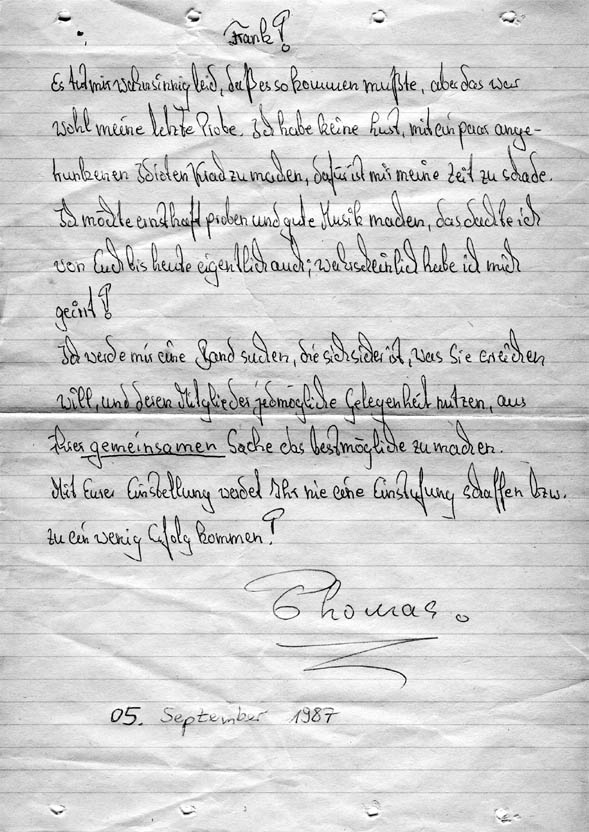 Frank!
Es tut mir wahnsinnig leid, daß es so kommen mußte, aber das war
wohl meine letzte Probe. Ich habe keine Lust, mit ein paar ange-
trunkenen Idioten Krad zu machen, dafür ist mir meine Zeit zu schade.
Ich möchte ernsthaft proben und gute Musik machen, das dachte ich
von Euch bis heute eigentlich auch; wahrscheinlich habe ich mich
geirrt!
Ich werde mir eine Band suchen, die sich sicher ist, was Sie erreichen
will, und deren Mitglieder jedmögliche Gelegenheit nutzen, aus
Ihrer gemeinsamen Sache das bestmögliche zu machen.
Mit Eurer Einstellung werdet Ihr nie eine Einstufung schaffen bzw.
zu ein wenig Erfolg kommen!
Thomas.
05. September 1987